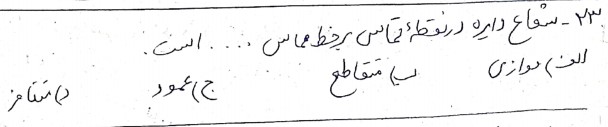 ۲۳- شعاع دایره در نقطهٔ تماس بر خط مماس .... است.
الف) موازی ب) متقاطع ج) عمود د) متنافر